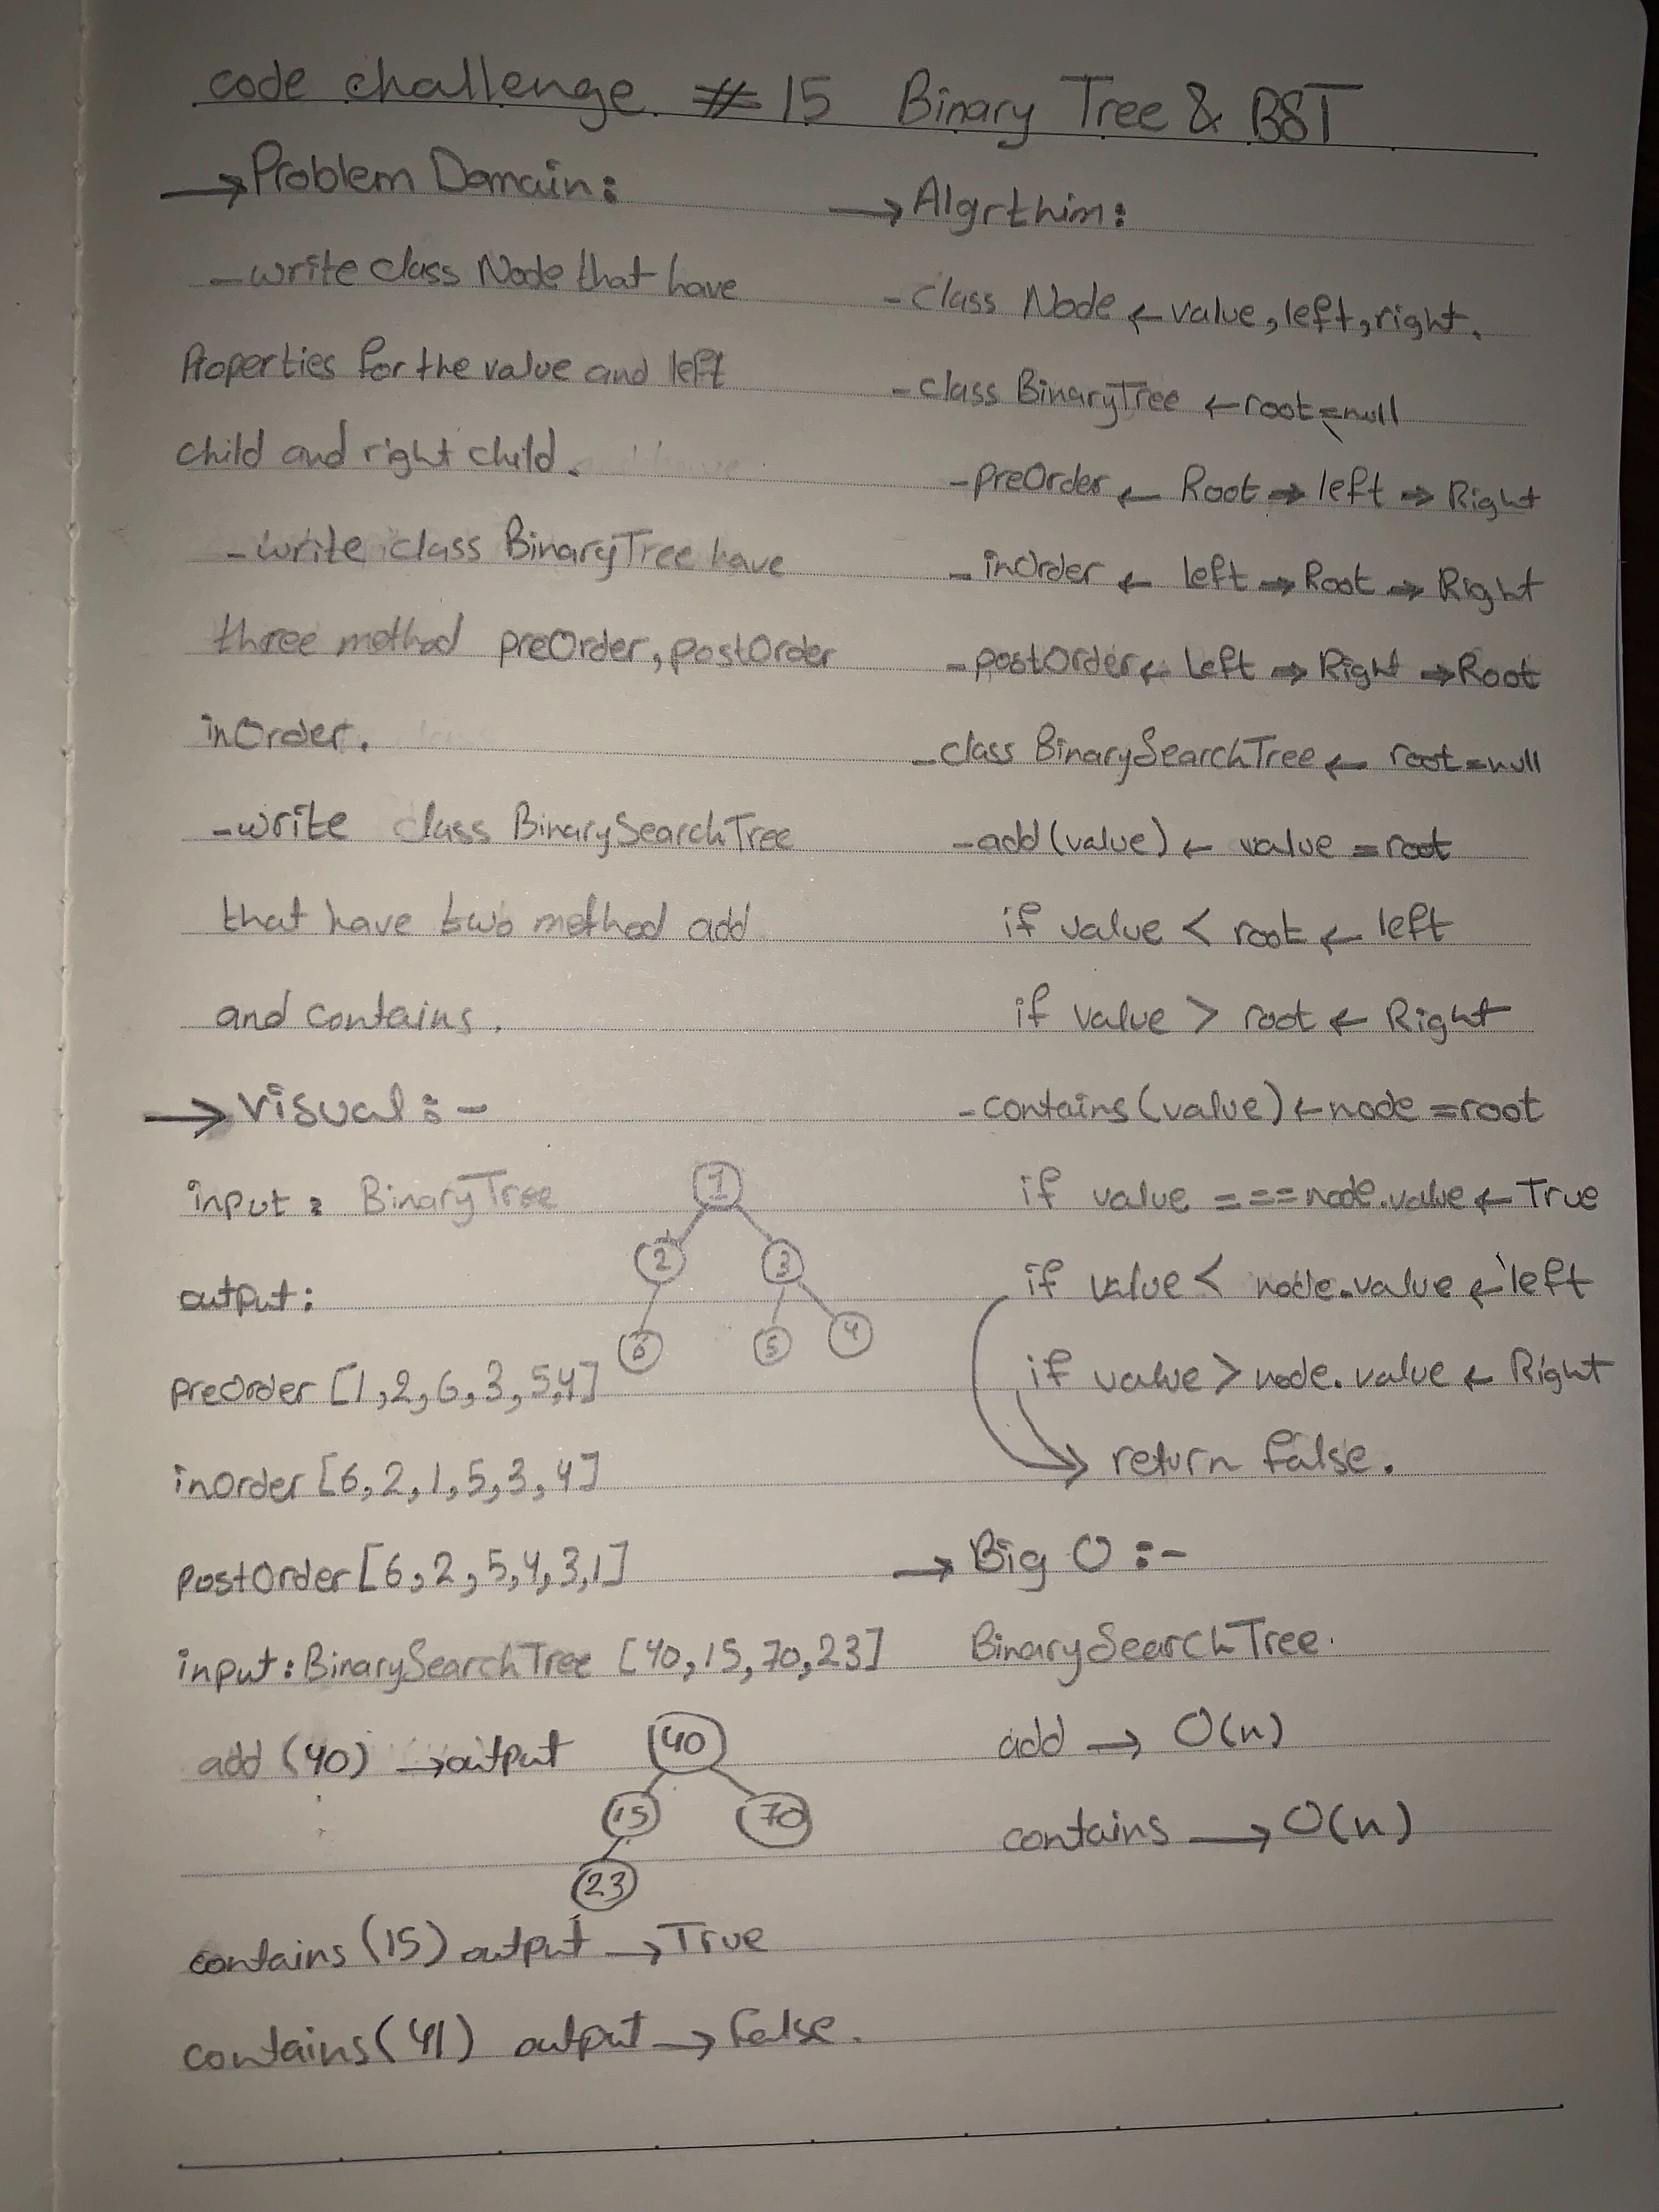 code challenge #15 Binary Tree & BST
→ Problem Domain:
- write class Node that have
Properties for the value and left
child and right child.
- write class BinaryTree have
three method preOrder, postOrder
inOrder.
- write class BinarySearchTree
that have two method add
and contains.
→ visual:-
input: BinaryTree
1
2 3
6 5 4
output:
preOrder [1,2,6,3,5,4]
inOrder [6,2,1,5,3,4]
postOrder [6,2,5,4,3,1]
input: BinarySearchTree [40,15,70,23]
add (40) → output
40
15 70
23
contains (15) output → True
contains (41) output → False.
→ Algrthim:
- class Node ← value, left, right.
- class BinaryTree ← root = null
- preOrder ← Root → left → Right
- inOrder ← left → Root → Right
- postOrder ← left → Right → Root
- class BinarySearchTree ← root = null
- add (value) ← value = root
if value < root ← left
if value > root ← Right
- contains (value) ← node = root
if value === node.value ← True
if value < node.value ← left
if value > node.value ← Right
return false.
→ Big O :-
BinarySearchTree.
add → O(n)
contains → O(n)